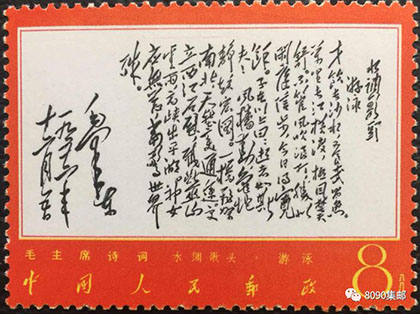 水调歌头
游泳
才饮长沙水，又食武昌鱼。
万里长江横渡，极目楚天
舒。不管风吹浪打，胜似
闲庭信步，今日得宽
馀。子在川上曰：逝者如斯
夫！风樯动，龟蛇
静，起宏图。一桥飞架
南北，天堑变通途。更
立西江石壁，截断巫山
云雨，高峡出平湖。神女
应无恙，当惊世界
殊。
毛泽东
一九五六年
十二月五日
毛主席诗词 水调歌头·游泳
中国人民邮政
8
8090集邮